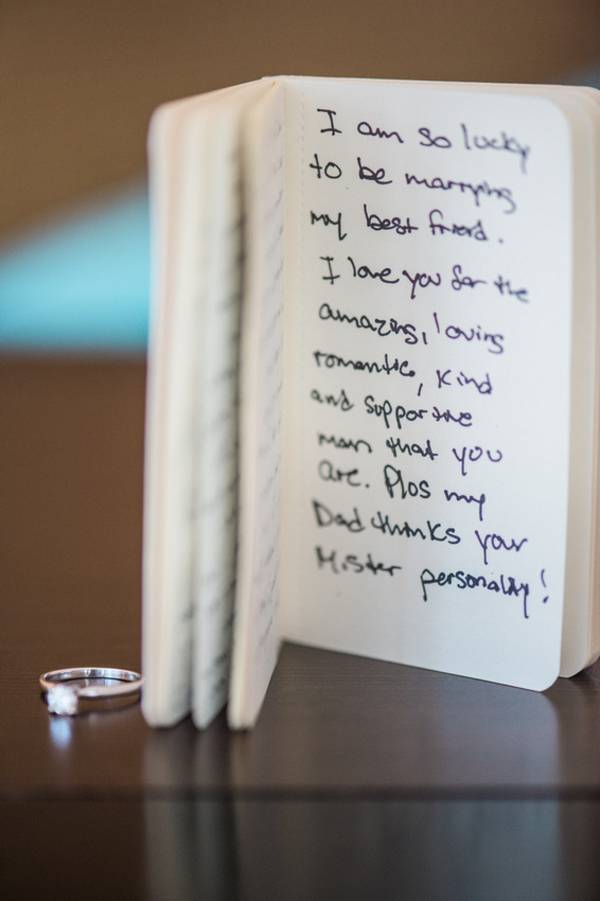 I am so lucky
to be marrying
my best friend.
I love you for the
amazing, loving
romantic, kind
and supportive
man that you
are. Plus my
Dad thinks your
Mister personality!